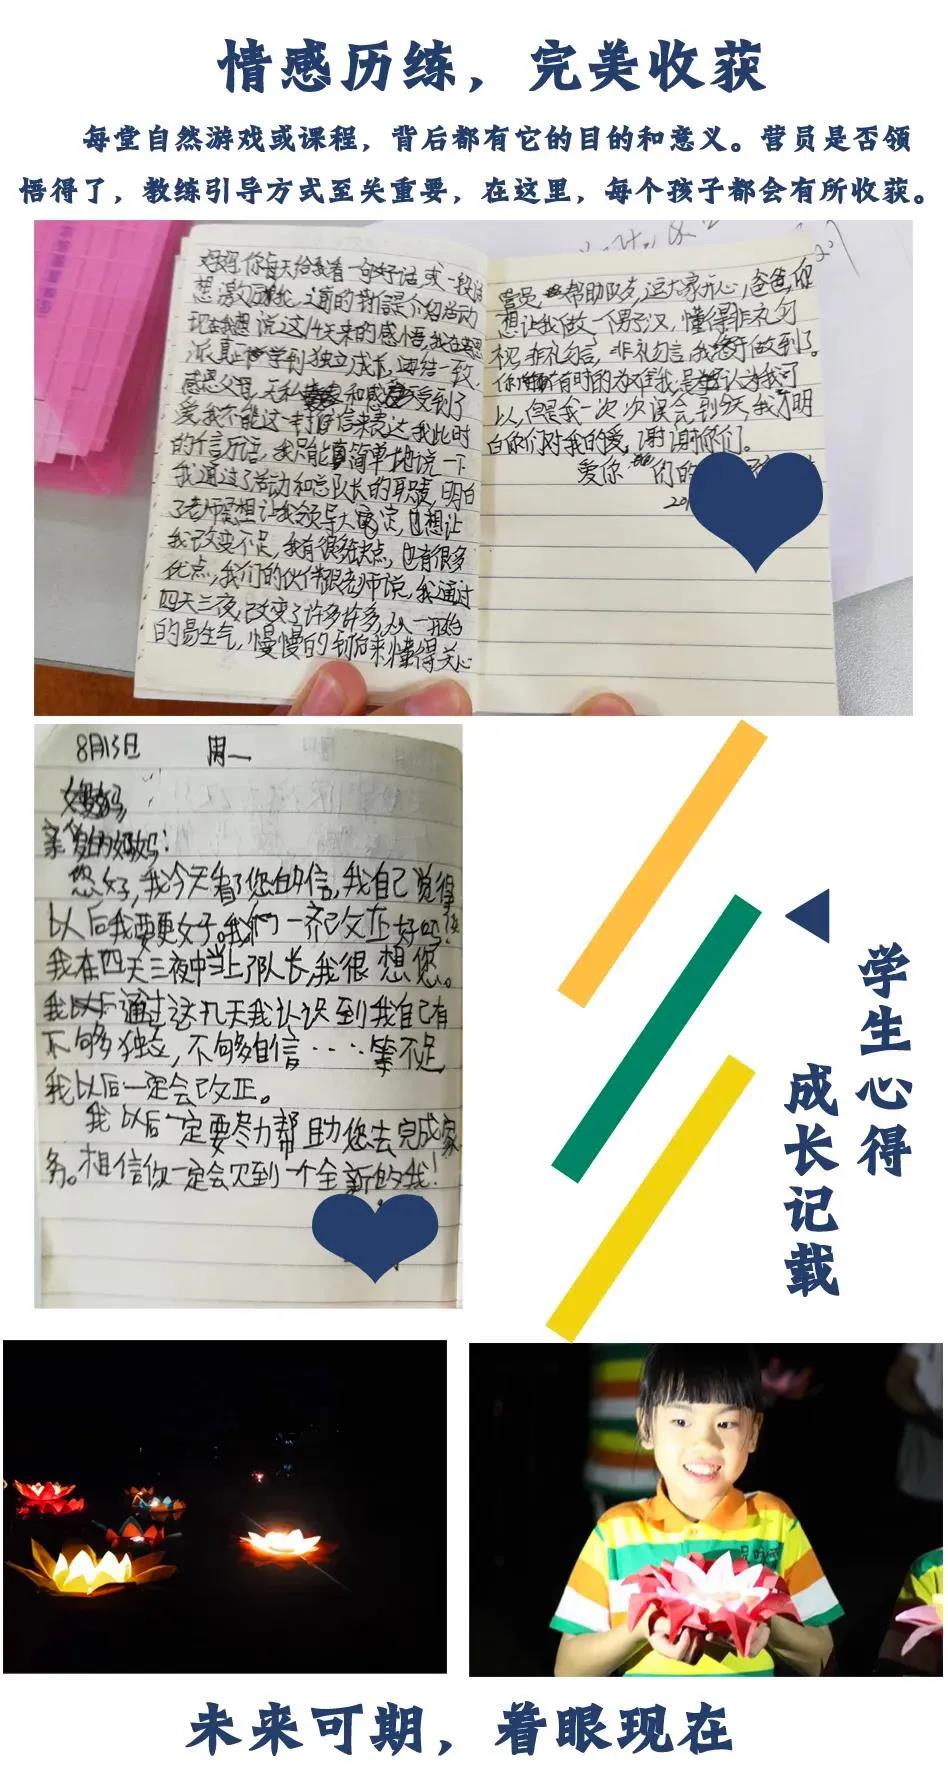 情感历练，完美收获
每堂自然游戏或课程，背后都有它的目的和意义。营员是否领
悟得了，教练引导方式至关重要，在这里，每个孩子都会有所收获。
妈妈，你每天给我看一句好话或一段话
想激励我，之前的封信是介绍活动
现在我想说这14天来的感悟，我在
学到独立成长，团结一致，
感恩父母，无私和感受到了
爱，我不能这一封信来表达我此时
的千言万语，我只能简单地说一下
我通过了活动和总队长的职责，明白
了老师想让我领导大家，也想让
我改变不足，我有很多缺点，也有很多
优点，我们的伙伴跟老师说，我通过
四天三夜，改变了许多许多，从一开始
的易生气，慢慢的到后来懂得关心
营员，帮助队友，逗大家开心，爸爸，你
想让我做一个男子汉，懂得非礼勿
视，非礼勿言，非礼勿言，我终于做到了。
你有时的为难我是认为我可
以，但是我一次次误会，到今天，我才明
白你们对我的爱，谢谢你们。
爱你们的
8月13日 周一
亲爱的妈妈：
您好，我今天看了您的信，我自己觉得
以后我要更好。我们一齐改正好吗？
我在四天三夜中当上了队长，我很想您。
我以后通过这几天我认识到我自己有
不够独立，不够自信……等不足
我以后一定会改正。
我以后一定要尽力帮助您去完成家
务。相信你一定会见到一个全新的我！
学生心得
成长记载
未来可期，着眼现在